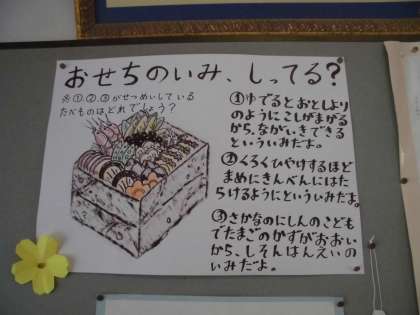 おせちのいみ、しってる?
※①、②、③がせつめいしている
たべものはどれでしょう?
①ゆでるとおとしより
のようにこしがまがる
から、ながいきできる
といういみだよ。
②くろくひやけするほど
まめにきんべんにはた
らけるようにといういみだよ。
③さかなのにしんのこども
でたまごのかずがおおい
から、しそんはんえいの
いみだよ。